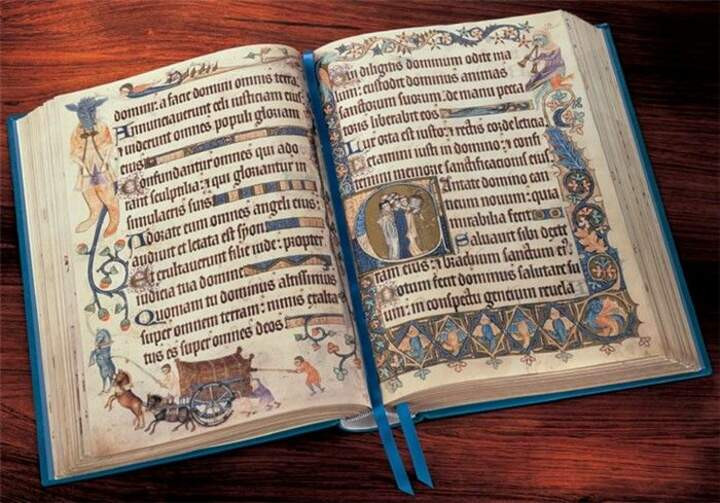 domini: a facie domini omnis terra
Annunciauerunt celi iusticiam eius:
⁊ uiderunt omnes populi gloriam
eius
Confundantur omnes qui ado
rant sculptilia: ⁊ qui gloriantur in
simulacris suis
Adorate eum omnes angeli eius:
audiuit et letata est syon
Et exultauerunt filie iude: propter
iudicia tua domine
Quoniam tu dominus altissimus
super omnem terram: nimis exalta
tus es super omnes deos
Qui diligitis dominum odite ma
lum: custodit dominus animas
sanctorum suorum: de manu pecca
toris liberabit eos
Lux orta est iusto: ⁊ rectis corde leticia
Letamini iusti in domino: ⁊ confi
temini memorie sanctificationis eius
Cantate domino can
ticum nouum: quia
mirabilia fecit
Saluauit sibi dext
eram eius: ⁊ brachium sanctum ei⁹
Notum fecit dominus salutare su
um: in conspectu gentium reuela